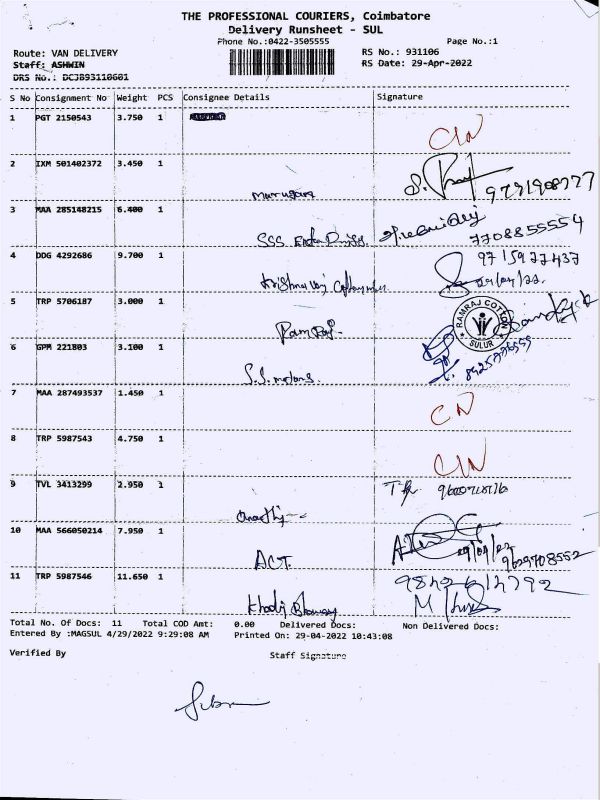 THE PROFESSIONAL COURIERS, Coimbatore
Delivery Runsheet - SUL
Phone No.:0422-3505555 Page No.:1
Route: VAN DELIVERY RS No.: 931106
Staff: ASHWIN RS Date: 29-Apr-2022
DRS No.: DCJB93110601
S No Consignment No Weight PCS Consignee Details Signature
1 PGT 2150543 3.750 1
CN
2 IXM 501402372 3.450 1
Murugara
9791908777
3 MAA 285148215 6.400 1
SSS
7708855554
4 DDG 4292686 9.700 1 9715977437
Krishna
29/04/22.
5 TRP 5706187 3.000 1
Ram Raj
RAMRAJ COTTON
SULUR
6 GPM 221803 3.100 1
S.S. motors
7 MAA 287493537 1.450 1
CN
8 TRP 5987543 4.750 1
CN
9 TVL 3413299 2.950 1
10 MAA 566050214 7.950 1
ACT. 29/04/22
9629708552
11 TRP 5987546 11.650 1
Total No. Of Docs: 11 Total COD Amt: 0.00 Delivered Docs: Non Delivered Docs:
Entered By :MAGSUL 4/29/2022 9:29:08 AM Printed On: 29-04-2022 10:43:08
Verified By Staff Signature